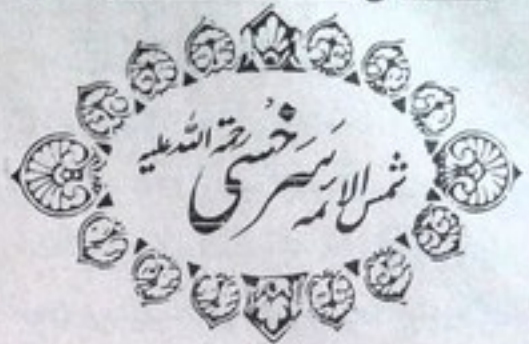 شمس الائمہ سَرَخْسی رحمۃ اللہ علیہ